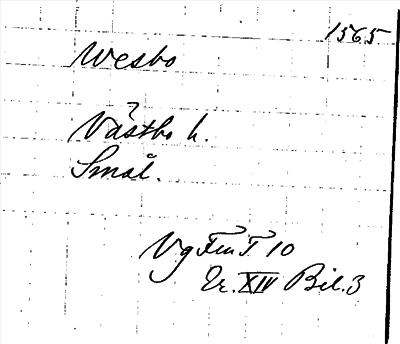 1565
Wesbo
Västbo h.
Smål.
Vg FmT 10
Er. XIV Bil. 3